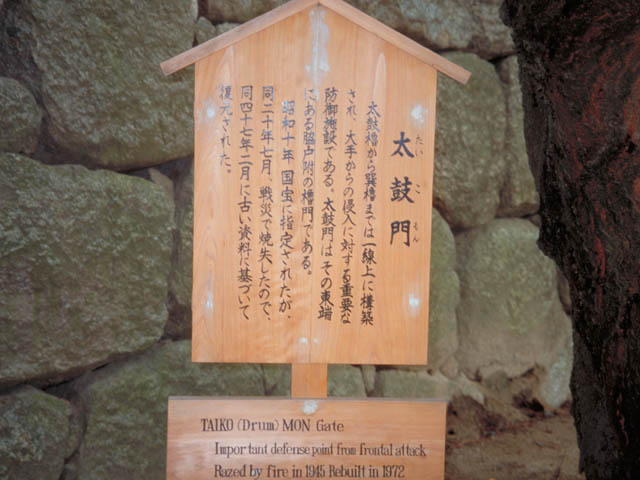 太鼓門
たいこもん
太鼓櫓から巽櫓までは一線上に構築
され、大手からの侵入に対する重要な
防御施設である。太鼓門はその東端
にある脇戸附の櫓門である。
昭和十年国宝に指定されたが、
同二十年七月、戦災で焼失したので、
同四十七年二月に古い資料に基づいて
復元された。
TAIKO (Drum) MON Gate
Important defense point from frontal attack
Razed by fire in 1945 Rebuilt in 1972